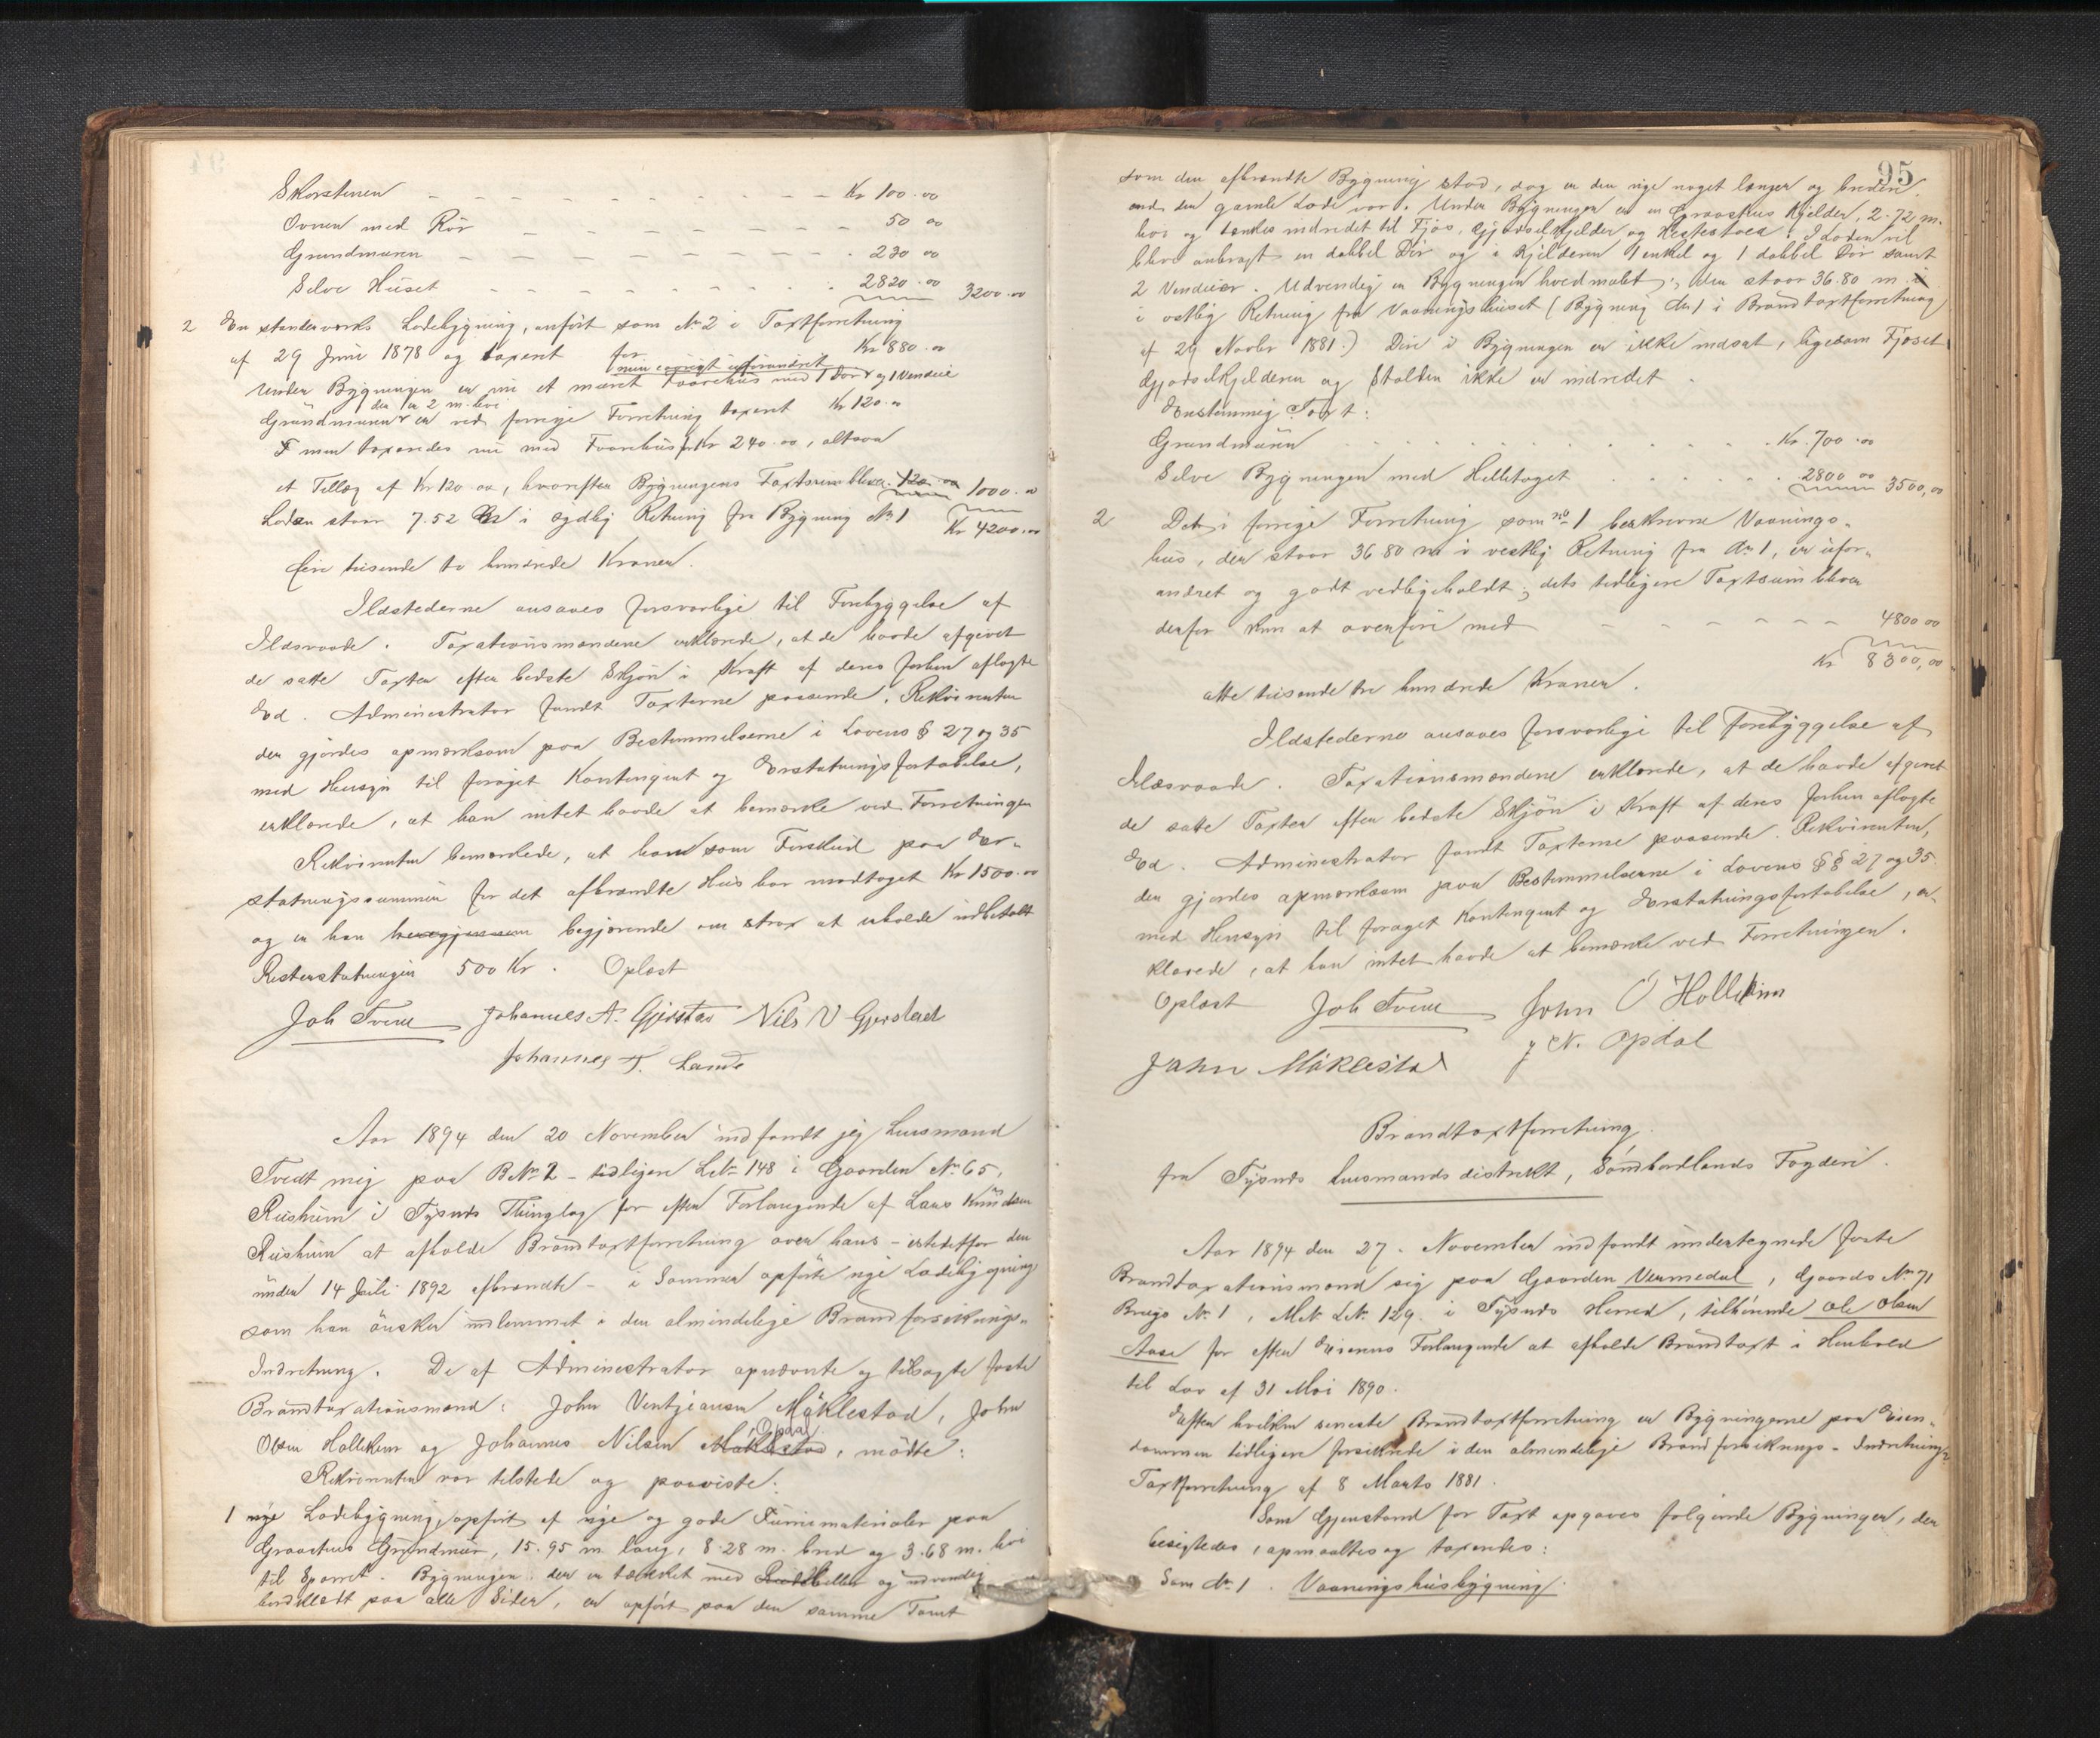 Skorstenen Kr 100.00
Ovnen med Rör 50 00
Grundmuren 230 00
Selve Huset 2820.00 3200.00
2 En stenderværks Ladebygning, anført som No 2 i Taxtforretning
af 29 Juni 1878 og taxeret for Kr 880.00
men övrigt uforandret
under Bygningen er nu et muret Faarehus med 1 Dør og 1 Vendue
den er 2 m. høi
Grundmuren er ved forrige Forretning taxeret Kr 120.00
men taxeredes nu med Faarehus Kr 240.00, altsaa
et Tillæg af Kr 120 00, hvorefter Bygningens Taxtsum bliver 120 00 1000.00
Laden staar 7.52 m i sydlig Retning fra Bygning No 1 Kr 4200.00
fire tusende to hundrede Kroner.
Ildstederne ansaaes forsvarlige til Forebyggelse af
Ildsvaade. Taxationsmændene erklærede, at de havde afgivet
de satte Taxter efter bedste Skjön i Kraft af deres forhen aflagte
Ed. Administrator fandt Taxterne passende. Rekvirenten
der gjordes opmærksom paa Bestemmelserne i Lovens § 27 og 35
med Hensyn til forøget Kontingent og Erstatningsfortabelse,
erklærede, at han intet havde at bemærke ved Forretningen
Rekvirenten bemærkede, at han som Forskud paa Er-
statningssummen for det afbrændte Hus har modtaget Kr 1500.00
og er han begjærende om strax at erholde udbetalt
Resterstatningen 500 Kr. Oplæst
Joh Tveit Johannes A. Gjerstad Nils N Gjerstad
Johannes T. Lande
Aar 1894 den 20 November indfandt jeg Lensmand
Tvedt mig paa B No 2 - tidligere L No 148 i Gaarden No 65,
Rusheim i Tysnes Thinglag for efter Forlangende af Lars Knudsen
Rusheim at afholde Brandtaxtforretning over hans - istedetfor den
under 14 Juli 1892 afbrændte - i Sommer opförte nye Ladebygning
som han önsker indlemmet i den almindelige Brandforsikrings-
Indretning. De af Administrator opnævnte og tilsagte faste
Brandtaxationsmænd: John Mäklestad, John
Opdal
Olsen Hollekim og Johannes Nilsen Mäklestad, mödte:
Rekvirenten var tilstede og paaviste:
1 nye Ladebygning, opført af nye og gode Furrumaterialer paa
Graastens Grundmur, 15.95 m. lang, 8.28 m. bred og 3.68 m. høi
til Sperret. Bygningen der er tækket med og udvendig
bordklædt paa alle Sider, er opført paa den samme Tomt
95
som den afbrændte Bygning stod, dog er den nye noget længer og bredere
end den gamle Lade var. Under Bygningen er en Graastens Kjelder, 2.72 m.
høi og tænkes indredet til Fjøs, Gjødselkjelder og Hestestald. I Laden vil
blive anbragt en dobbel Dør og i Kjelderen 1 enkel og 1 dobbel Dør samt
2 Venduer. Udvendig er Bygningen hvidmalet; den staar 36.80 m.
i østlig Retning fra Vaaningshuset (Bygning No 1 i Brandtaxtforretning
af 29 Novbr 1881.) Dire i Bygningen er ikke indsat, ligesom Fjøset
Gjødselkjelderen og Stalden ikke er indredet.
Enstemmig Taxt:
Grundmuren Kr. 700.00
Selve Bygningen med Helletaget 2800 00 3500,00
2 Det i forrige Forretning som No 1 beskrevne Vaanings-
hus, der staar 36.80 m i vestlig Retning fra No 1, er ufor-
andret og godt vedligeholdt; dets tidligere Taxtsum bliver
derfor kun at overføre med 4800 00
Kr 8300,00
otte tusende tre hundrede Kroner.
Ildstederne ansaaes forsvarlige til Forebyggelse af
Ildsvaade. Taxationsmændene erklærede, at de havde afgivet
de satte Taxter efter bedste Skjön i Kraft af deres forhen aflagte
Ed. Administrator fandt Taxterne passende. Rekvirenten,
der gjordes opmærksom paa Bestemmelserne i Lovens §§ 27 og 35
med Hensyn til forøget Kontingent og Erstatningsfortabelse, er-
klærede, at han intet havde at bemærke ved Forretningen.
Oplæst Joh Tveit John O Hollekim
John Mäklestad J N. Opdal
Brandtaxtforretning
fra Tysnes Lensmandsdistrikt, Söndhordlands Fogderi.
Aar 1894 den 27. November indfandt undertegnede faste
Brandtaxationsmænd sig paa Gaarden Vermedal, Gaards No 71
Brugs No 1, Mat. L No 129 i Tysnes Herred, tilhörende Ole Olsen
Aase for efter Eierens Forlangende at afholde Brandtaxt i Henhold
til Lov af 31 Mai 1890.
Efter hvilken seneste Brandtaxtforretning er Bygningerne paa Eien-
dommen tidligere forsikrede i den almindelige Brandforsikrings-Indretning:
Taxtforretning af 8 Marts 1881.
Som Gjenstand for Taxt opgaves følgende Bygninger, der
besigtedes, opmaaltes og taxeredes:
Som No 1. Vaaningshusbygning: